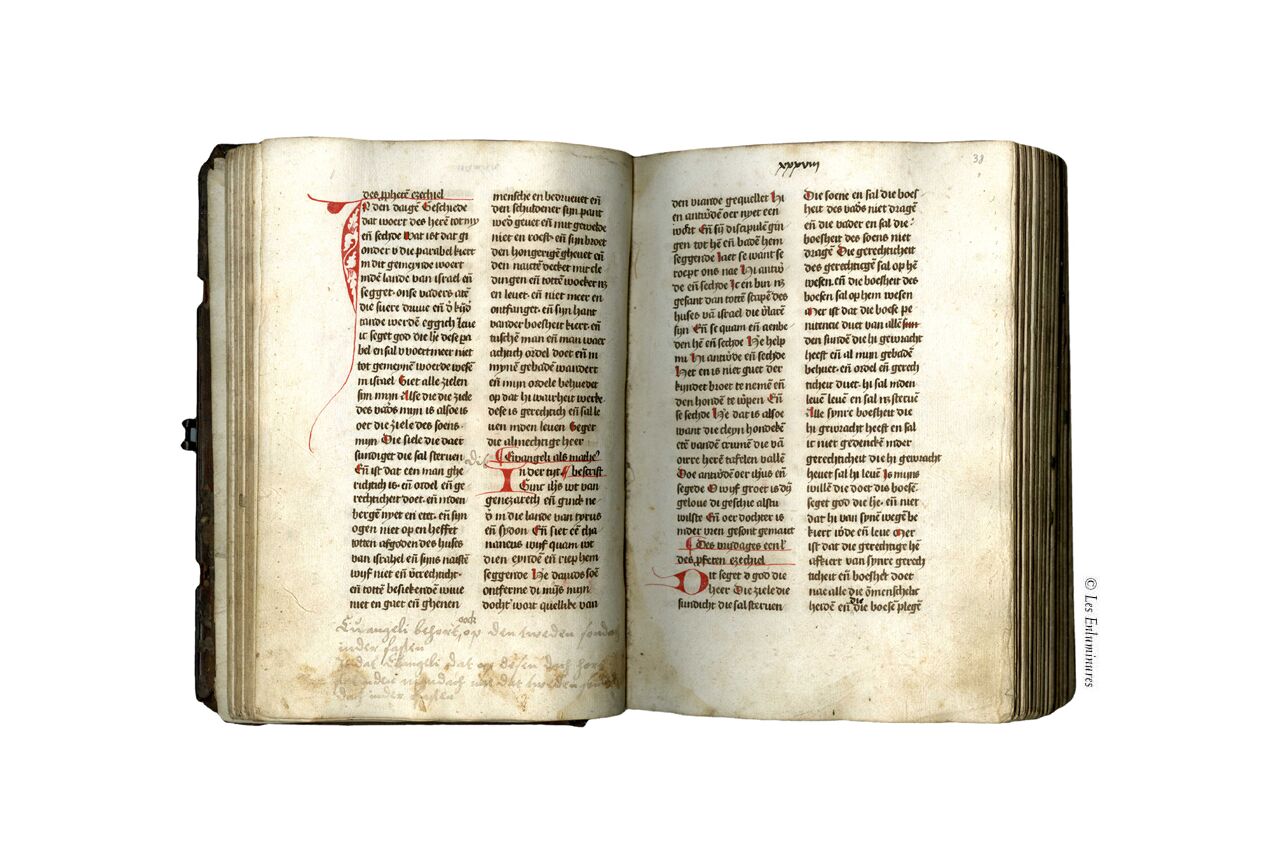 des ꝓphetē ezechiel
N den dagē Geschiede
dat woert des herē tot my
en̄ sechde Wat ist dat gi
onder v die parabel kiert
in dit gemeynde woert
inden lande van israel en̄
segget · onse vaders atē
die suere druue en̄
tande werdē eggich
ic seget god die
bel en sal v voertmeer niet
tot gemeynē woerde wesē
in israel Siet alle zielen
sijn mijn Alse die die ziele
des vad̄s mijn is alsoe is
oec die ziele des soens
mijn Die siele die daer
sundiget die sal steruen
En̄ ist dat een man
richtich is · en̄ ordel en̄ ge
rechticheit doet · en̄ inden
bergē nyet en etet · en̄ sijn
ogen niet op en heffet
totten afgoden des huses
van israhel en̄ sijns naistē
wijf niet en̄
en̄ totte besiekende wiue
niet en gaet en̄ ghenen
mensche en bedrueuet en̄
den schuldener sijn pant
wed̄ geuet en̄ mit gewelde
niet en roeft · en̄ sijn broet
den hongerigē gheuet en̄
den naectē decket mit cle
dingen en̄ tottē woeker
en leuet · en̄ niet meer en
ontfanget · en̄ sijn hant
vander boesheit kiert · en̄
tusschē man en̄ man waer
achtich ordel doet en̄ in
mynē gebadē wandert
en̄ mijn ordele behuedet
op dat hi waerheit werke ·
dese is gerechtich en̄ sal le
uen inden leuen Seget
die almechtige heer
Ewangeli als mathe9
In der tijt bescrift
Ginc ihs wt van
genezareth en̄ ginck ne
d̄ in die lande van tyrus
en̄ sydon En̄ siet eē cha
naneus wijf quam wt
dien eyndē en̄ riep hem
seggende He dauids soē
ontferme di mijns mijn
dochter wort quelike van
Ewangeli behort oock op den tweden sonda
inder fasten
dat Ewangeli dat op desen dach hort
dat tweden
inder fasten
38
den viande gequellet Hi
en antwoerde oer nyet een
woert En̄ sijn discipulē gin
gen tot hē en̄ badē hem
seggende Laet se want se
roept ons nae Hi antwo
de en̄ sechde Ic en bin
gesant dan totten scapē des
huses vā israel die
sijn En̄ se quam en̄ aenbe
den hē en̄ sechde He help
mi Hi antwoerde en̄ sechde
Het en is niet guet der
kynder broet te nemē en̄
den hondē te werpen En̄
se sechde He dat is alsoe
want die cleyn hondekē
etē vandē crumē die vā
oerre herē tafelen vallē
Doe antwoerde oer ihus en̄
segede O wijf groet is dijn
geloue di geschie alstu
wilste En̄ oer dochter is
inder vren gesont gemaect
Des vrijdages een l'
des ꝓfeten ezechiel
Dit seget d̄ god die
heer Die ziele die
sundicht die sal steruen
Die soene en sal die boes
heit des vad̄s niet dragē
en̄ die vader en sal die
boesheit des soens niet
dragē Die gerechticheit
des gerechtigē sal op hē
wesen · en̄ die boesheit des
boesen sal op hem wesen
Mer ist dat die boese pe
nitencie duet van allē sun
den sunden die hi gewracht
heeft en̄ al mijn gebadē
behuet · en̄ ordel en̄ gerech
ticheit duet · hi sal inden
leuē leuen en sal steruē
Alle sijnre boesheit die
hi gewracht heeft en sal
ic niet gedenckē meer
gerechticheit die hi gewracht
heuet sal hi leuē Is mijns
willē die doet des boesē ·
seget god die he · en̄ niet
dat hi van sijnē wegē be
kiert werde en̄ leue Mer
ist dat die gerechtige hē
afkiert van sijnre gerech
ticheit en̄ boesheit doet
nae alle die
heiden en̄ die die boese plegē
© Les Enluminures